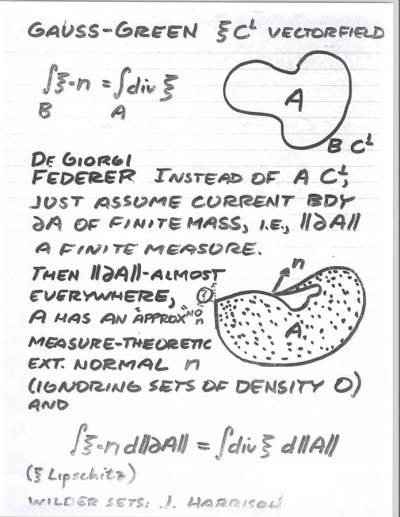 GAUSS-GREEN ξ C¹ VECTORFIELD
∫ξ·n = ∫div ξ
B A
A
B C¹
DE GIORGI
FEDERER INSTEAD OF A C¹,
JUST ASSUME CURRENT BDY
∂A OF FINITE MASS, I.E., ||∂A||
A FINITE MEASURE.
THEN ||∂A||-ALMOST
EVERYWHERE,
A HAS AN "APPROX"
MEASURE-THEORETIC
EXT. NORMAL n
(IGNORING SETS OF DENSITY 0)
AND
n
?
NO n
A
∫ξ·n d||∂A|| = ∫div ξ d||A||
(ξ Lipschitz)
WILDER SETS: J. HARRISON